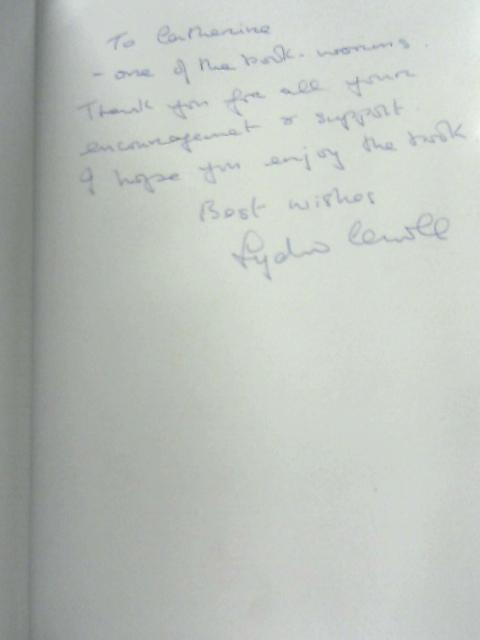 To Catherine
- one of the book-worms.
Thank you for all your
encouragement & support
I hope you enjoy the book
Best wishes
Lydia